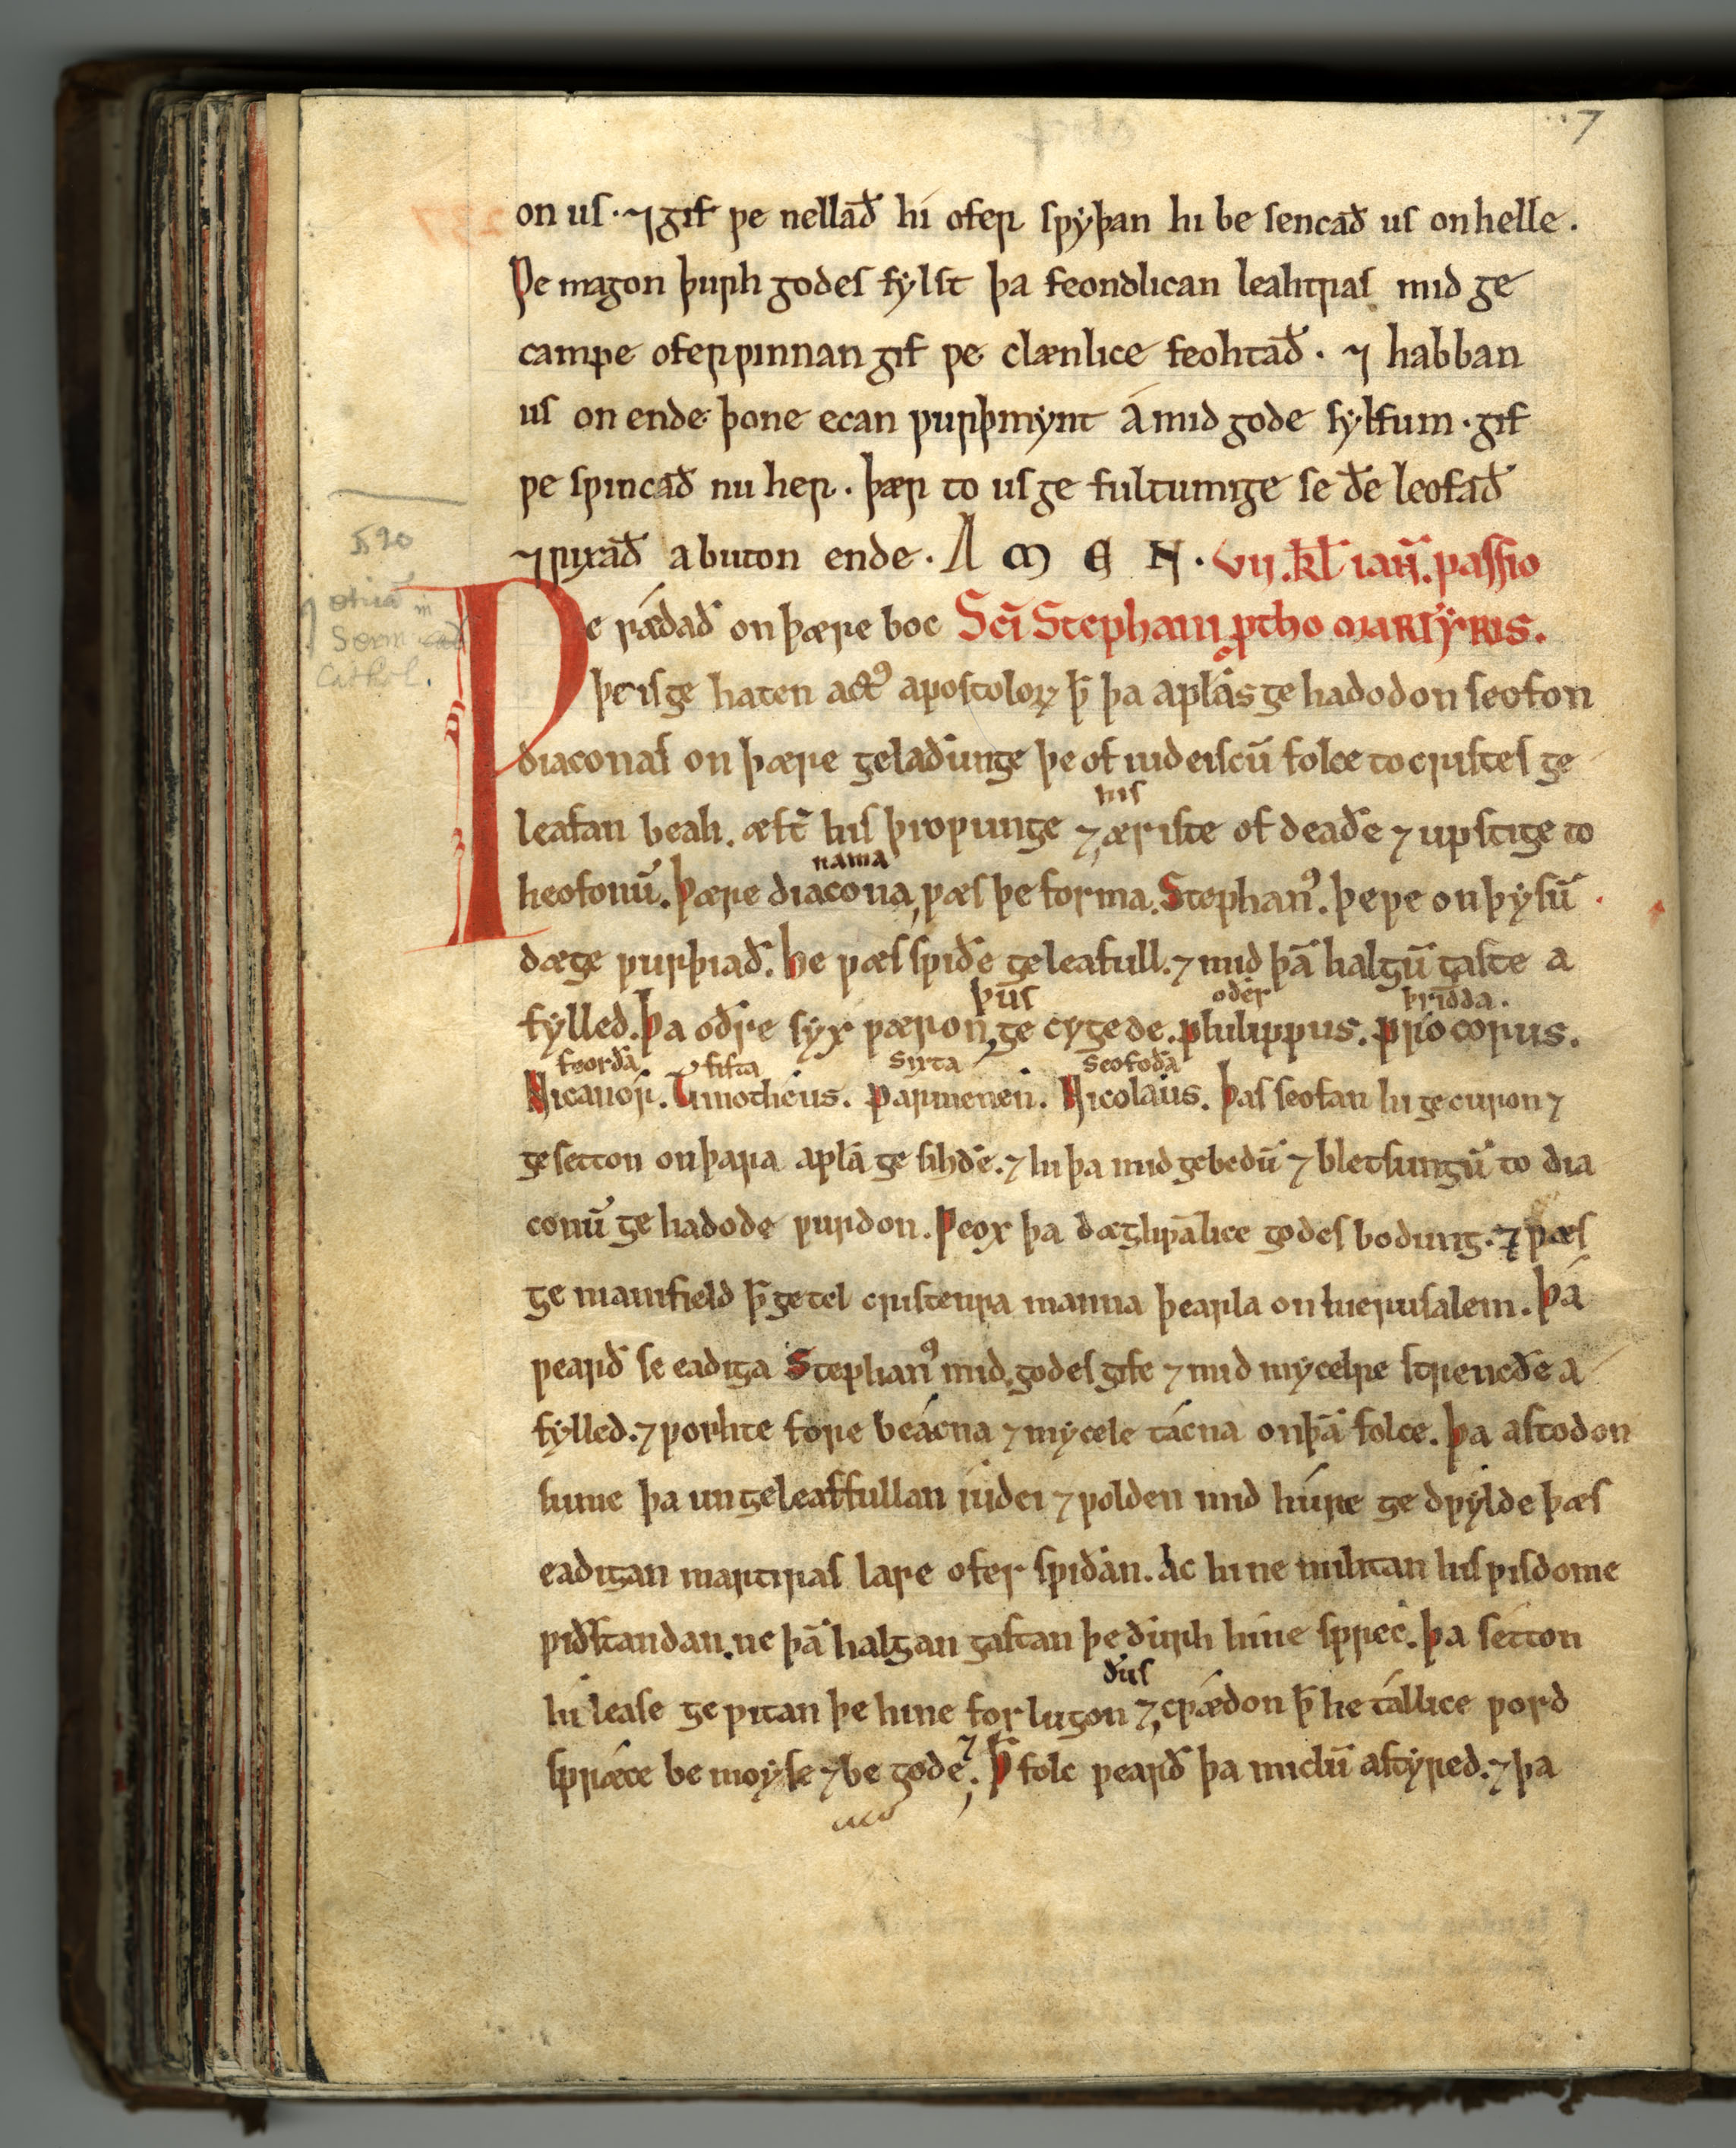 7
on us · ⁊ gif ƿe nellað hí ofer sƿyþan hi be sencað us on helle .
Ƿe magon þurh godes fylst þa feondlican leahtras mid ge
campe oferƿinnan gif ƿe clænlice feohtað · ⁊ habban
us on ende þone ecan ƿurþmynt á mid gode sylfum · gif
ƿe sƿincað nu her . þær to us ge fultumige se ðe leofað
⁊ rixað a buton ende . A M E N . vii . kl̄ ian̄ . passio
Ƿe rǽdað on þære boc Sc̄i Stephani ꝓtho martyris .
þe is ge haten actꝰ apostoloꝝ ꝥ þa apl̄as ge hadodon seofon
diaconas on þære gelaðunge þe of iudeiscū folce to cristes ge
his
leafan beah . æft̄ his þroƿunge ⁊, æriste of deaðe ⁊ upstige to
nama
heofonū . Þære diacona, ƿæs þe forma . Stephanꝰ . þe ƿe on þysū
dæge ƿurþiað . he ƿæs sƿiðe geleafull . ⁊ mid þā halgū gaste a
þus oðer þridda .
fylled . Þa oðre syx ƿæron, ge cygede . philippus . priocorus .
feorða fifta sixta seofoða
Nicanor . Timotheus . parmenen . Nicolaus . Þas seofan hi gecuron ⁊
gesetton on þara apl̄a ge sihðe . ⁊ hi þa mid gebedū ⁊ bletsungū to dia
conū ge hadode ƿurdon . Ƿeox þa dæghƿālice godes bodung . ⁊ ƿæs
ge manifield ꝥ getel cristenra manna þearla on hierusalem . Þá
ƿearð se eadiga Stephanꝰ mid godes gife ⁊ mid mycelre strencðe a
fylled . ⁊ ƿorhte fore beácna ⁊ mycele tácna on þā folce . Þa astodon
sume þa ungeleaffullan iúdei ⁊ ƿolden mid húre ge dƿylde þæs
eadigan martiras lare ofer sƿiðan . Ac hi ne mihtan his ƿisdome
ƿiðstandan . ne þā halgan gastan þe ðurh hine sprec . Þa setton
ðus
hi lease ge ƿitan þe hine for lugon ⁊, cƿædon ꝥ he tállice ƿord
⁊
spræce be moyse ⁊ be gode, . Ꝥ folc ƿearð þa miclū astyred . ⁊ þa